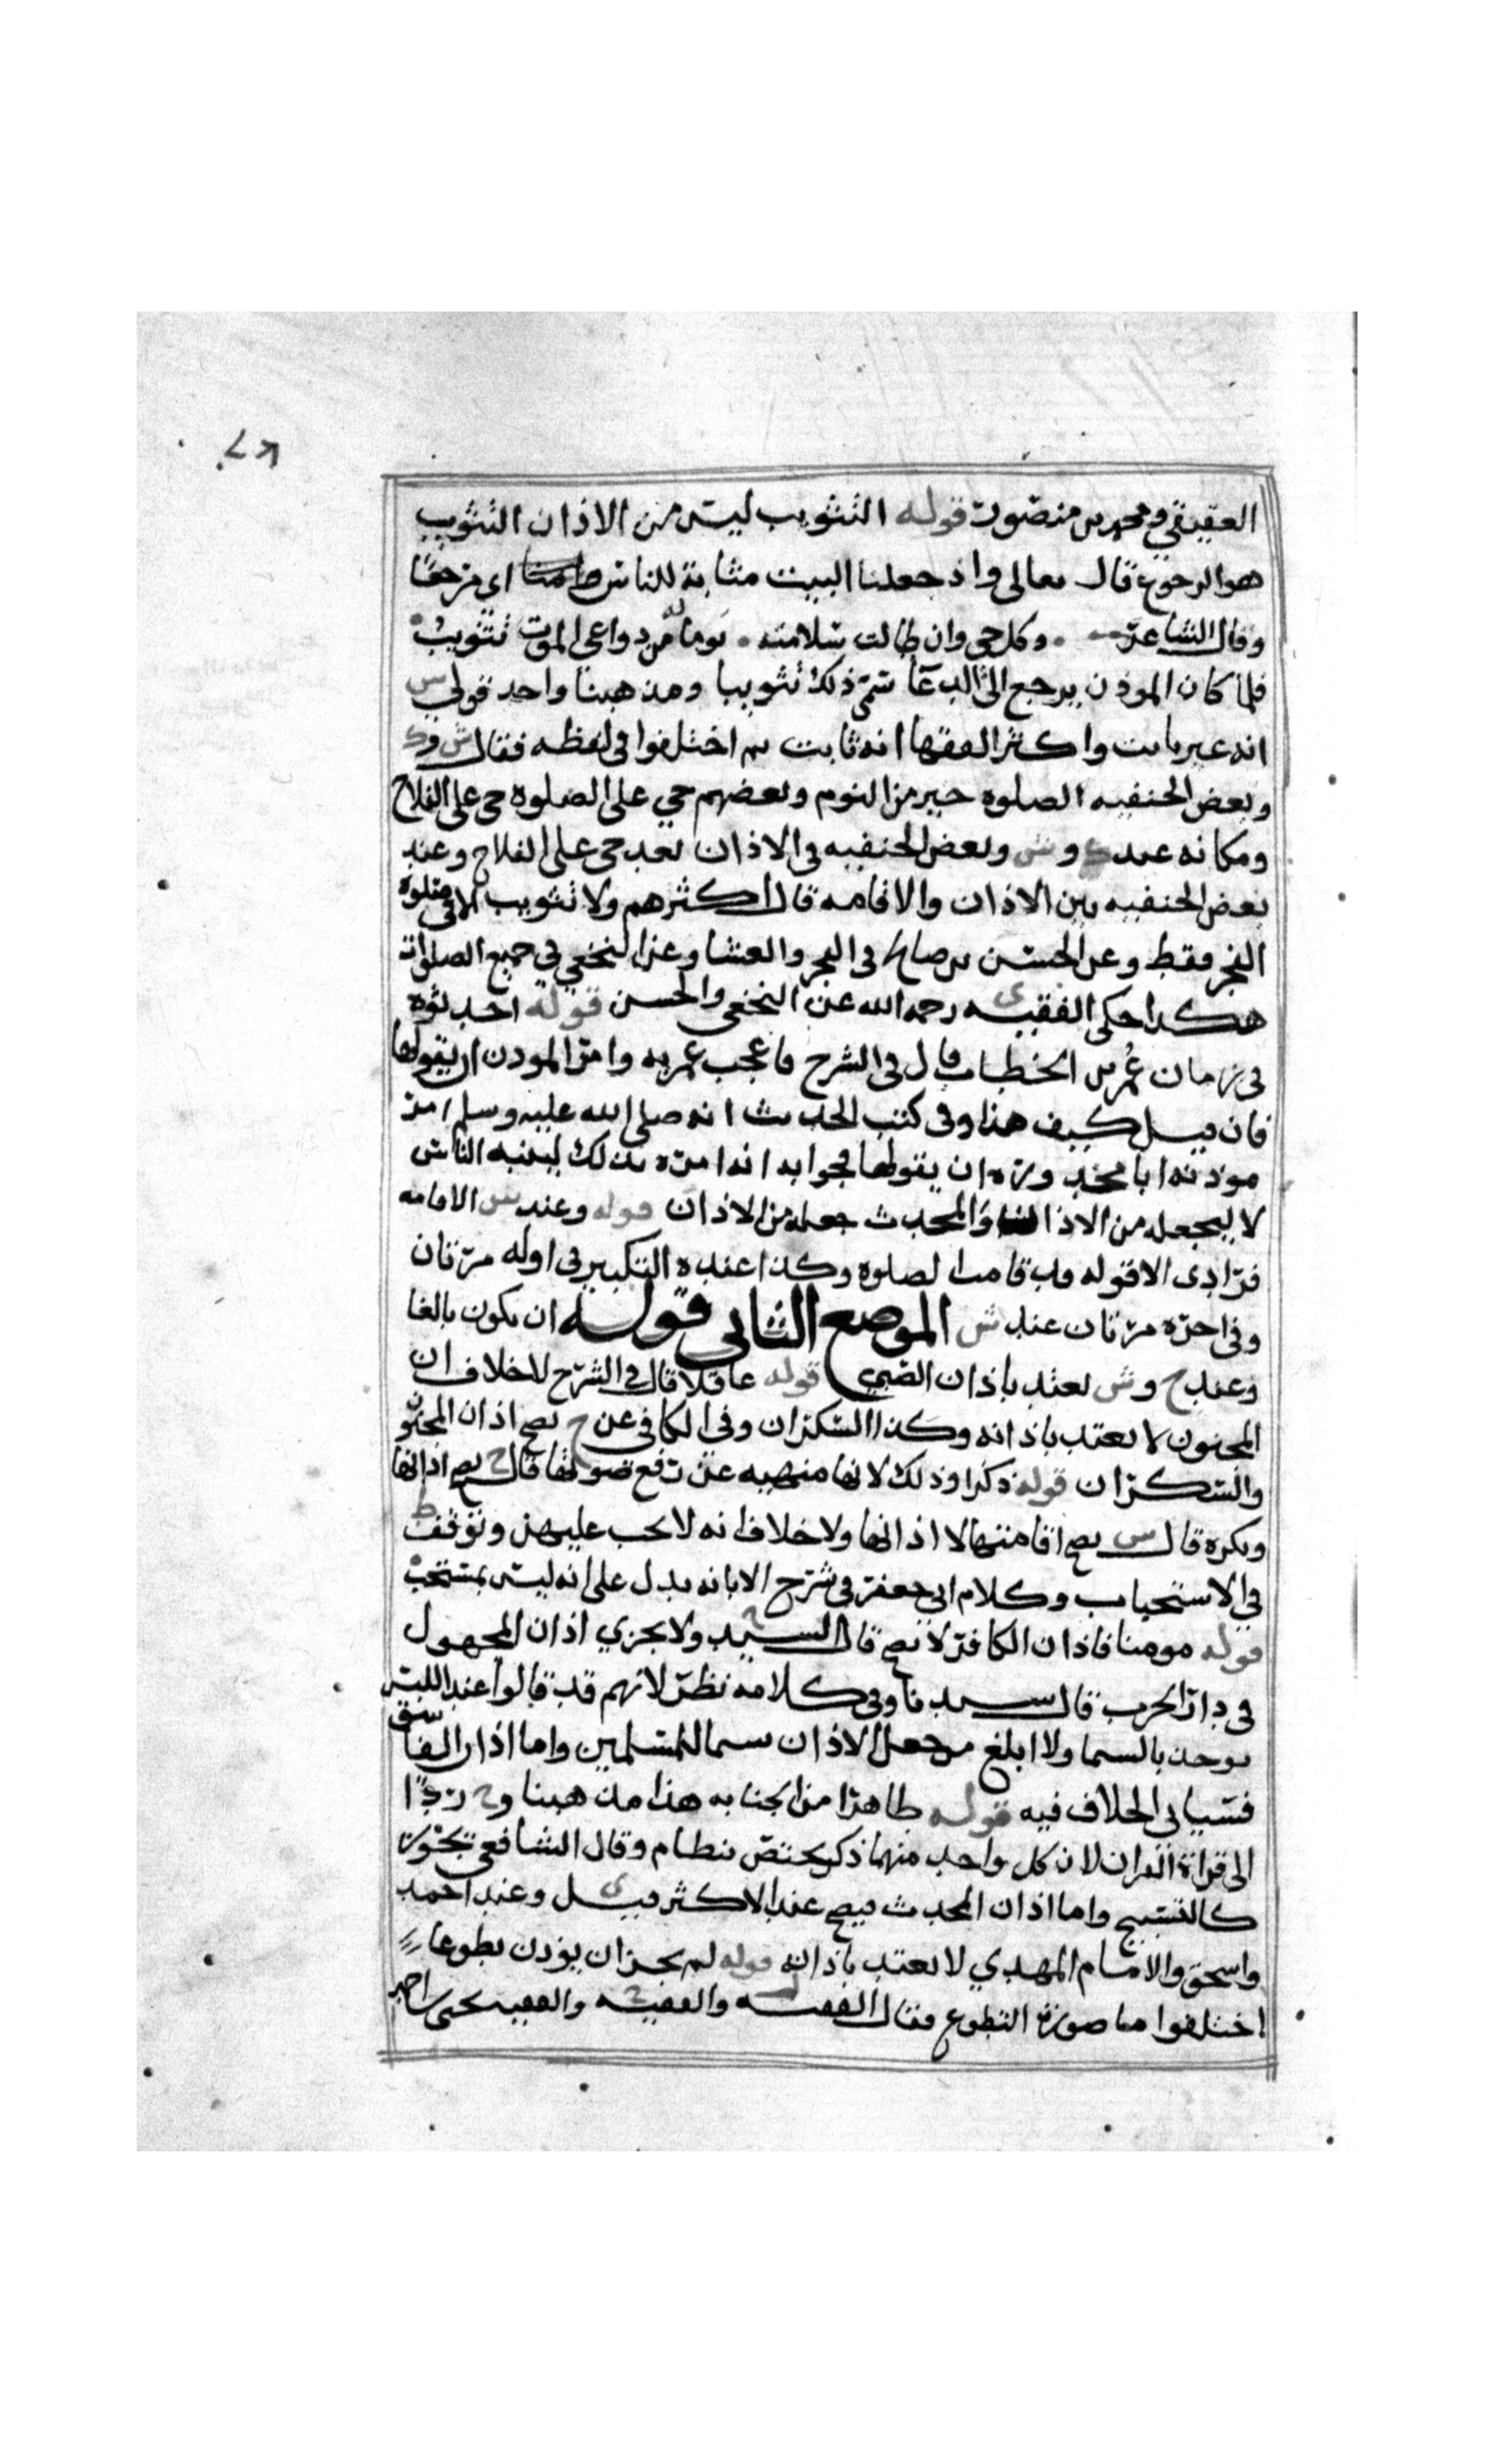 العقيقي ومحمد بن منصور قوله التثويب ليس من الاذان التثويب
هو الرجوع قال تعالى واذ جعلنا البيت مثابة للناس اي مرجعا
وقال الشاعر وكل حي وان طالت سلامته يوما له من دواعي الموت تثويب
فلما كان الموذن يرجع الى الدعا سمي ذلك تثويبا ومذهبنا واحد قولي س
انه غير ثابت واكثر الفقها انه ثابت ثم اختلفوا في لفظه فقال ش وك
وبعض الحنفيه الصلوة خير من النوم وبعضهم حي على الصلوة حي على الفلاح
ومكانه عند ك و ش وبعض الحنفيه في الاذان بعد حي على الفلاح وعند
بعض الحنفيه بين الاذان والاقامه قال اكثرهم ولا تثويب الا في صلوة
الفجر فقط وعن الحسن بن صالح في الفجر والعشا وعن النخعي في جميع الصلوات
هكذا حكى الفقيه ي رحمه الله عن النخعي والحسن قوله احدثوه
في زمان عمر بن الخطاب قال في الشرح فاعجب عمر به وامر الموذن ان يقولها
فان قيل كيف هذا وفي كتب الحديث انه صلى الله عليه وسلم امر
موذنه ابا محذورة ان يقولها فجوابه انه امره بذلك لينبه الناس
لا ليجعله من الاذان والمحدث جعله من الاذان قوله وعند س الاقامه
فرادى الا قوله قد قامت الصلوه وكذا عنده التكبير في اوله مرتان
وفي اخره مرتان عند ش الموضع الثاني قوله ان يكون بالغا
وعند ح و ش يعتد باذان الصبي قوله عاقلا قال في الشرح لا خلاف ان
المجنون لا يعتد باذانه وكذا السكران وفي الكافي عن ح يصح اذان المجنون
والسكران قوله ذكرا وذلك لانها منهيه عن رفع صوتها قال ح يصح اذانها
ويكره قال س يصح اقامتها لا اذانها ولا خلاف انه لا يجب عليهن وتوقف ط
في الاستحباب وكلام ابي جعفر في شرح الابانه يدل على انه ليس بمستحب
قوله مومنا فاذان الكافر لا يصح قال السيد ح ولا يجزي اذان المجهول
في دار الحرب قال سيدنا وفي كلامه نظر لانهم قد قالوا عند اللبس
يوخذ بالسيما ولا ابلغ من جعل الاذان سيما للمسلمين واما اذان الفاسق
فسياتي الخلاف فيه قوله طاهرا من الجنابه هذا مذهبنا و ح ردا
الى قراة القران لان كل واحد منهما ذكر يختص بنظام وقال الشافعي يجوز
كالتسبيح واما اذان المحدث فيصح عند الاكثر قيل ي وعند احمد
واسحق والامام المهدي لا يعتد باذانه قوله لم يجز ان يوذن تطوعا
اختلفوا ما صورة التطوع فقال الفقيه ل والفقيه ح والفقيه يحيى بن احمد